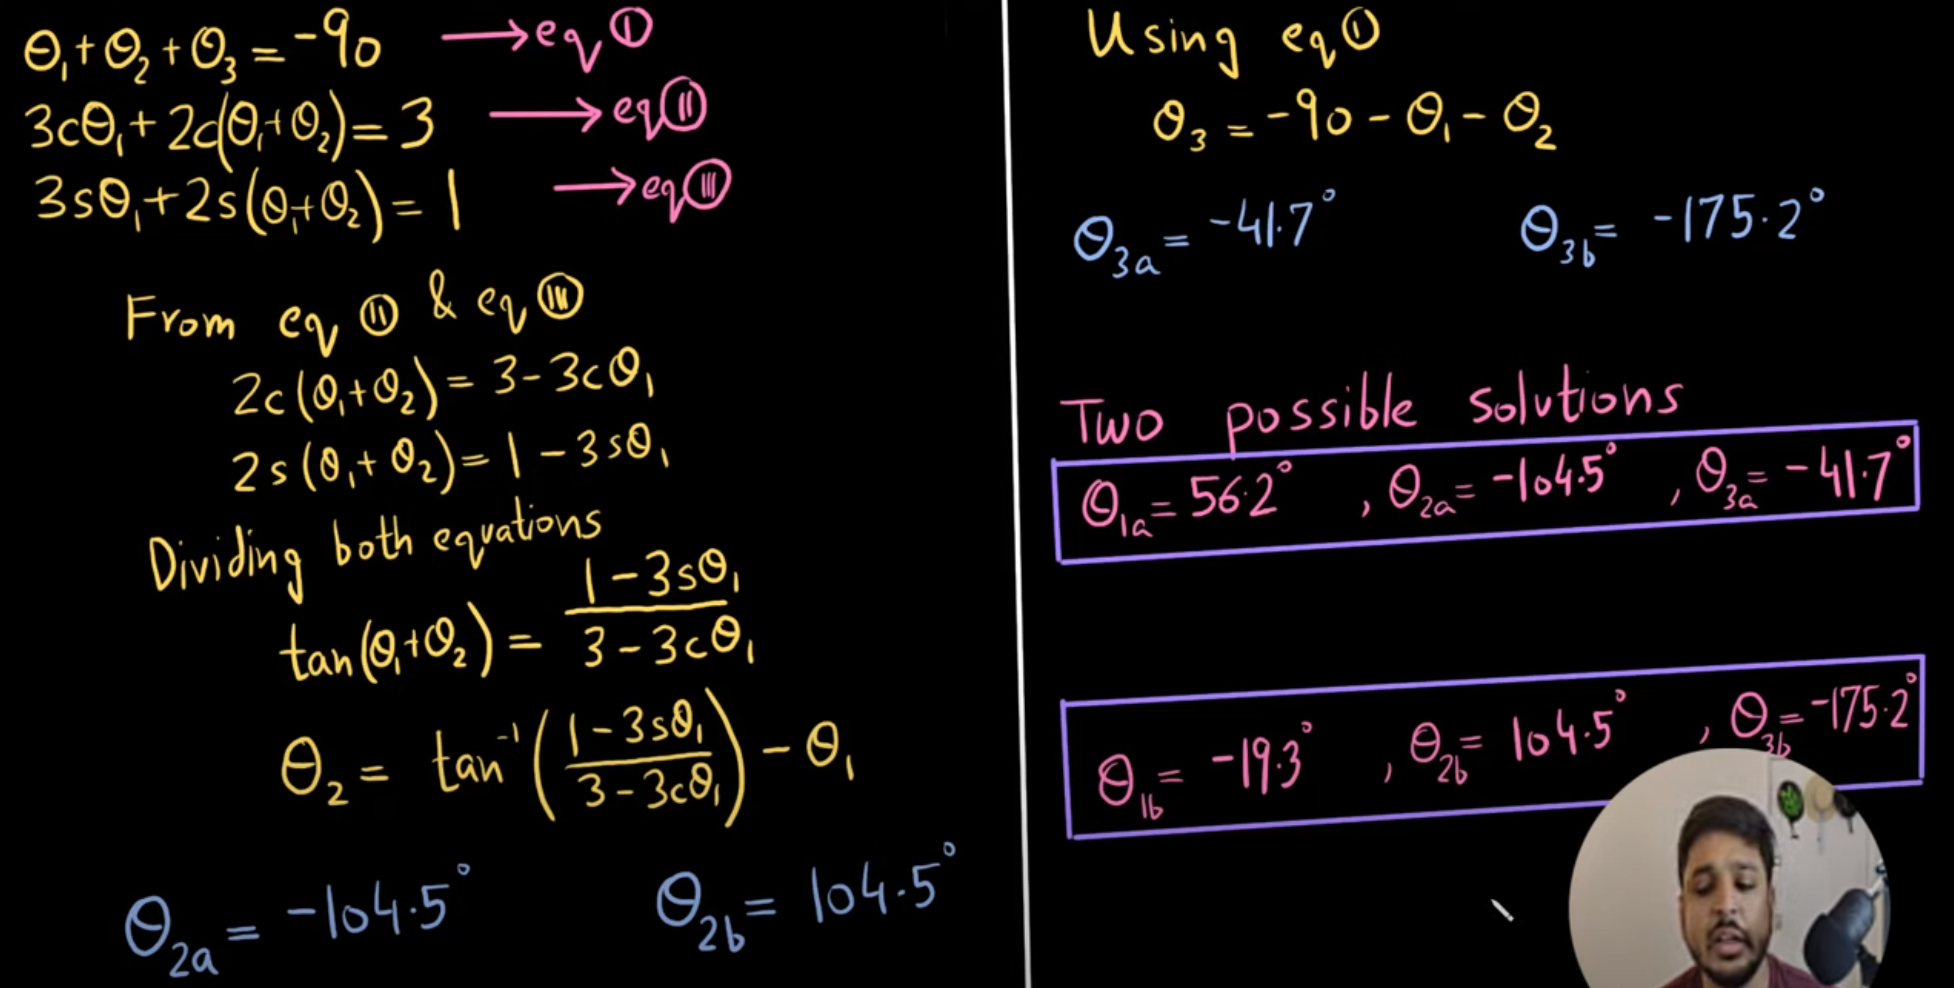 θ₁+θ₂+θ₃=-90 → eq Ⓘ
3cθ₁+2c(θ₁+θ₂)=3 → eq Ⓘⓘ
3sθ₁+2s(θ₁+θ₂)=1 → eq (III)
From eq (II) & eq (III)
2c(θ₁+θ₂)=3-3cθ₁
2s(θ₁+θ₂)=1-3sθ₁
Dividing both equations
tan(θ₁+θ₂)=
1-3sθ₁
3-3cθ₁
θ₂ = tan⁻¹(1-3sθ₁/3-3cθ₁)-θ₁
θ₂ₐ=-104.5° θ₂b=104.5°
Using eq Ⓘ
θ₃=-90-θ₁-θ₂
θ₃ₐ=-41.7° θ₃b=-175.2°
Two possible solutions
θ₁ₐ=56.2° , θ₂ₐ=-104.5° , θ₃ₐ=-41.7°
θ₁b=-19.3° , θ₂b=104.5° , θ₃b=-175.2°